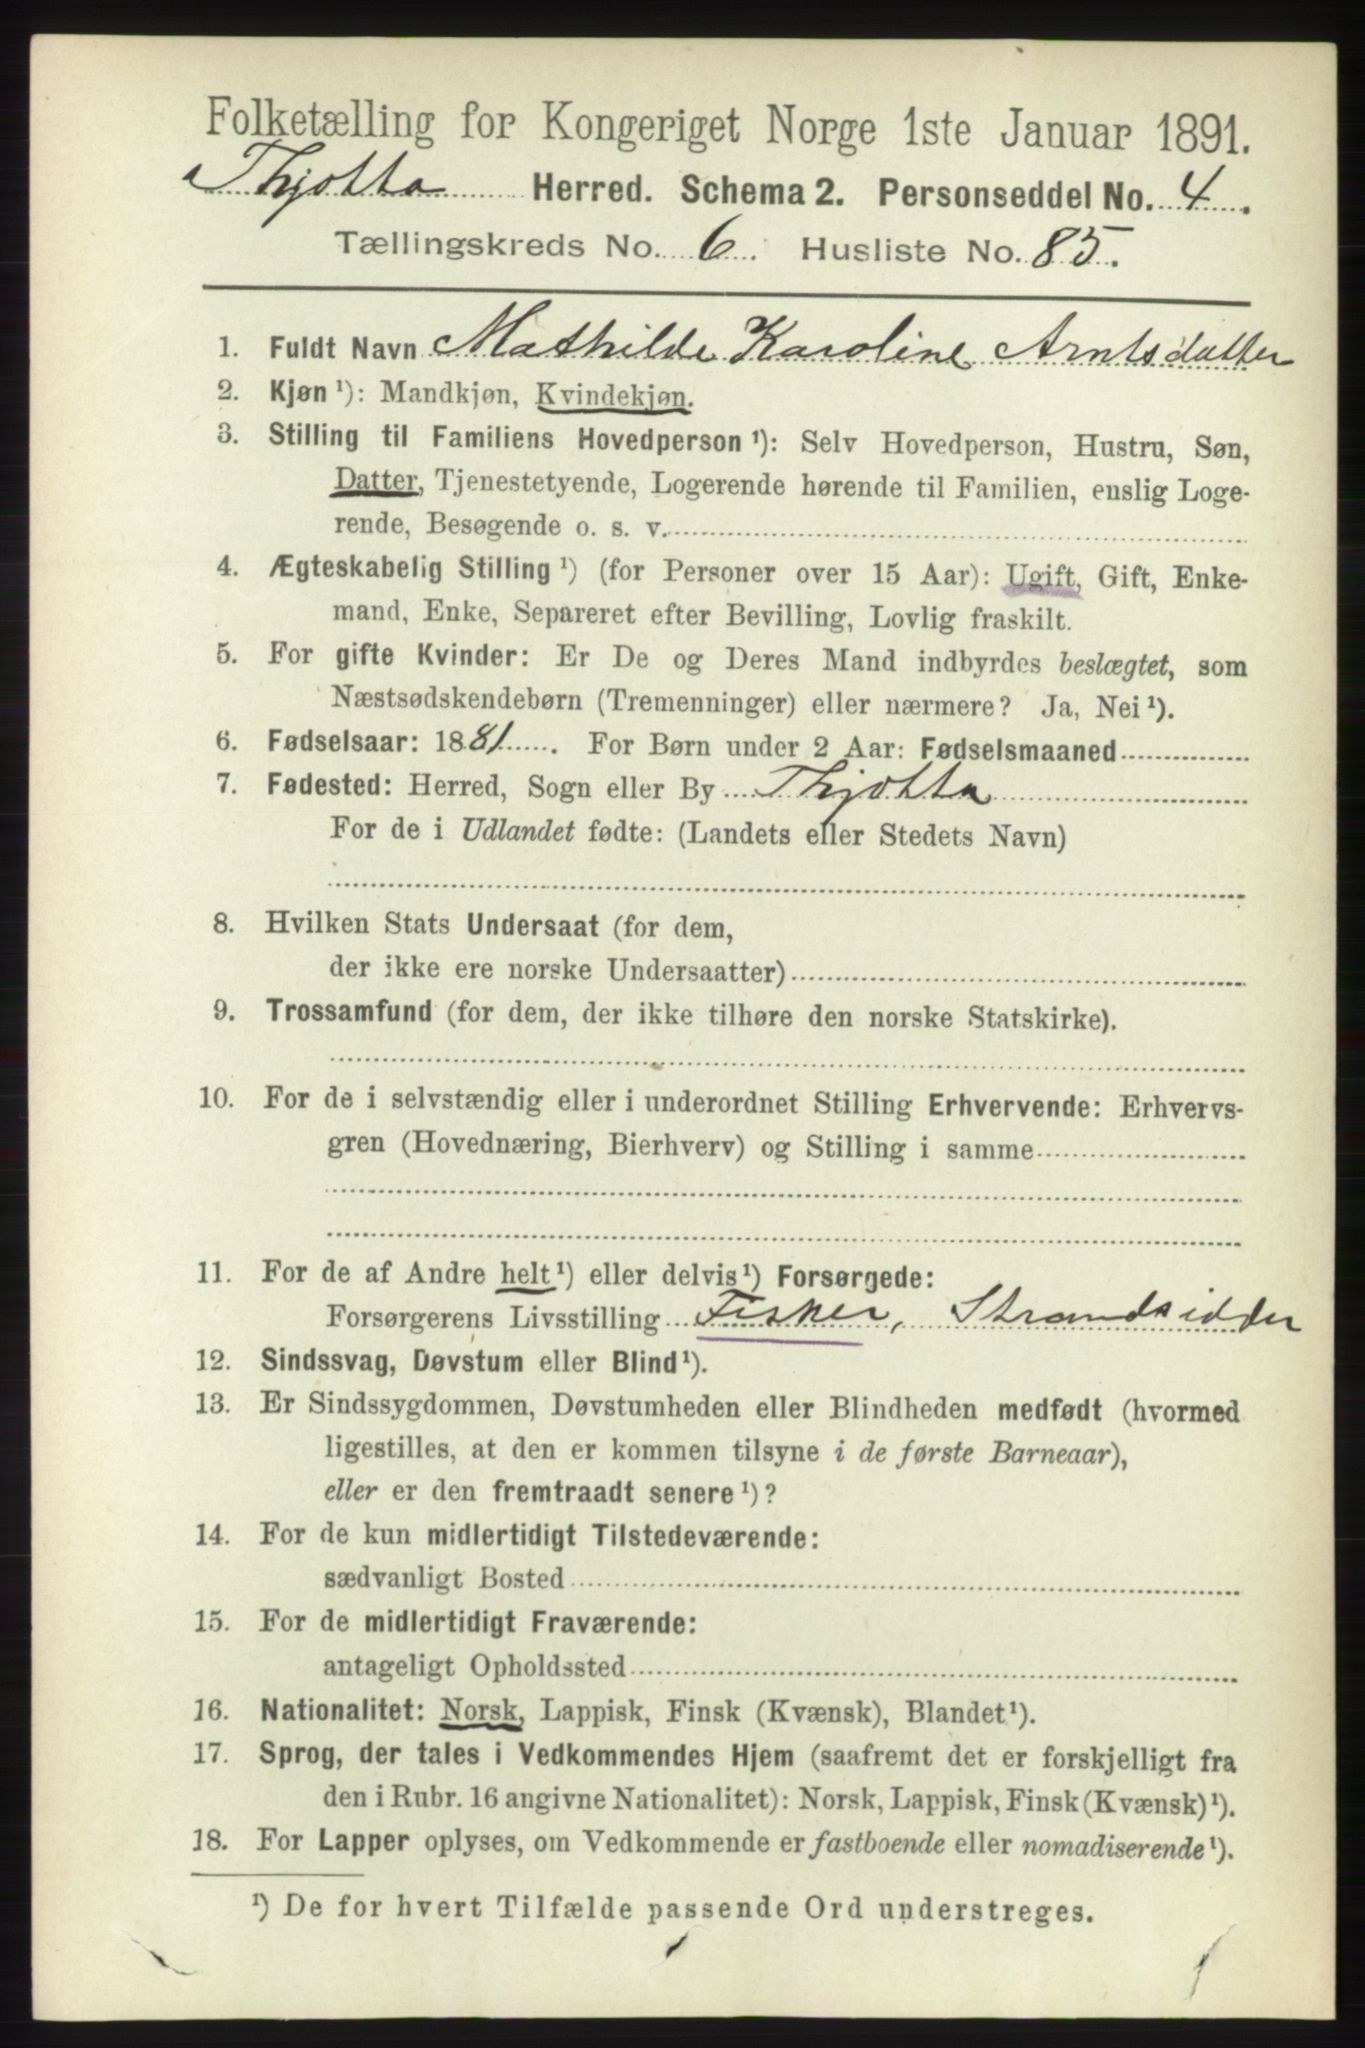 Folketælling for Kongeriget Norge 1ste Januar 1891.
Thjotta Herred. Schema 2. Personseddel No. 4.
Tællingskreds No. 6. Husliste No. 85.
1. Fuldt Navn Mathilde Karoline Arntsdatter
2. Kjøn ¹): Mandkjøn, Kvindekjøn.
3. Stilling til Familiens Hovedperson ¹): Selv Hovedperson, Hustru, Søn,
Datter, Tjenestetyende, Logerende hørende til Familien, enslig Loge-
rende, Besøgende o. s. v.
4. Ægteskabelig Stilling ¹) (for Personer over 15 Aar): Ugift, Gift, Enke-
mand, Enke, Separeret efter Bevilling, Lovlig fraskilt.
5. For gifte Kvinder: Er De og Deres Mand indbyrdes beslægtet, som
Næstsødskendebørn (Tremenninger) eller nærmere? Ja, Nei ¹).
6. Fødselsaar: 1881. For Børn under 2 Aar: Fødselsmaaned
7. Fødested: Herred, Sogn eller By Thjotta
For de i Udlandet fødte: (Landets eller Stedets Navn)
8. Hvilken Stats Undersaat (for dem,
der ikke ere norske Undersaatter)
9. Trossamfund (for dem, der ikke tilhøre den norske Statskirke).
10. For de i selvstændig eller i underordnet Stilling Erhvervende: Erhvervs-
gren (Hovednæring, Bierhverv) og Stilling i samme
11. For de af Andre helt ¹) eller delvis ¹) Forsørgede:
Forsørgerens Livsstilling Fisker, Strandsidder
12. Sindssvag, Døvstum eller Blind ¹).
13. Er Sindssygdommen, Døvstumheden eller Blindheden medfødt (hvormed
ligestilles, at den er kommen tilsyne i de første Barneaar),
eller er den fremtraadt senere ¹)?
14. For de kun midlertidigt Tilstedeværende:
sædvanligt Bosted
15. For de midlertidigt Fraværende:
antageligt Opholdssted
16. Nationalitet: Norsk, Lappisk, Finsk (Kvænsk), Blandet ¹).
17. Sprog, der tales i Vedkommendes Hjem (saafremt det er forskjelligt fra
den i Rubr. 16 angivne Nationalitet): Norsk, Lappisk, Finsk (Kvænsk) ¹).
18. For Lapper oplyses, om Vedkommende er fastboende eller nomadiserende ¹).
¹) De for hvert Tilfælde passende Ord understreges.